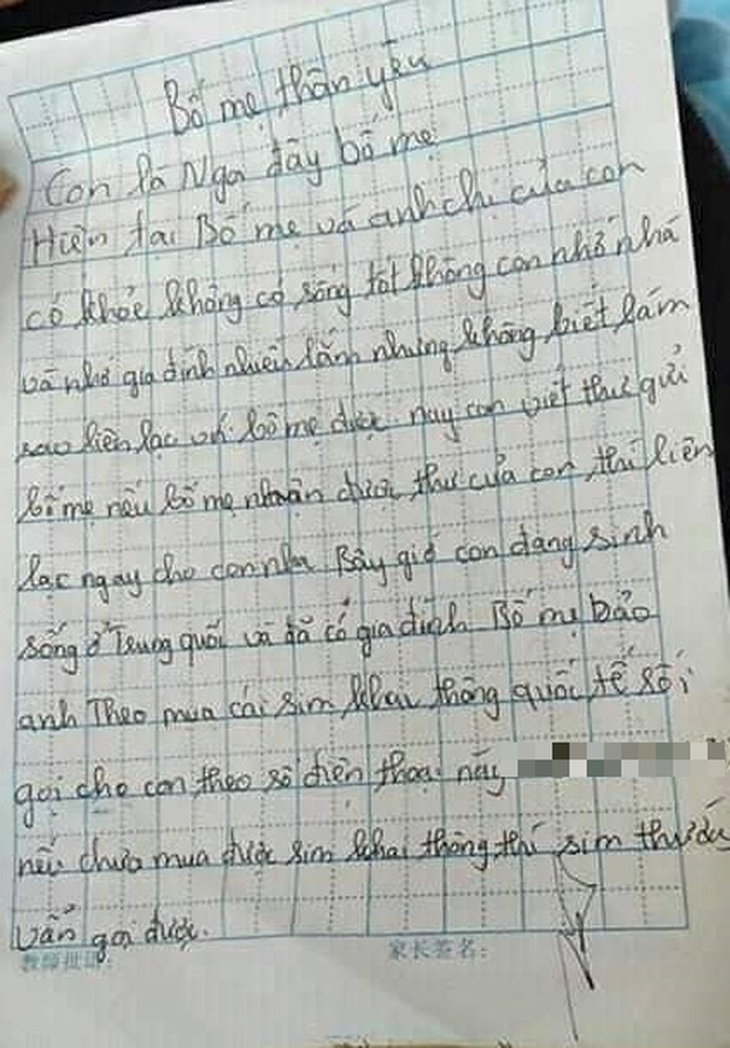 Bố mẹ thân yêu
Con là Nga đây bố mẹ
Hiện tại Bố mẹ và anh chị của con
có khỏe không có sống tốt không con nhớ nhà
và nhớ gia đình nhiều lắm nhưng không biết làm
sao liên lạc với bố mẹ được nay con viết thư gửi
bố mẹ nếu bố mẹ nhận được thư của con thì liên
lạc ngay cho con nha Bây giờ con đang sinh
sống ở Trung quốc và đã có gia đình Bố mẹ bảo
anh Theo mua cái sim khai thông quốc tế rồi
gọi cho con theo số điện thoại này
nếu chưa mua được sim khai thông thì sim thường
vẫn gọi được.
教师批语: 家长签名: